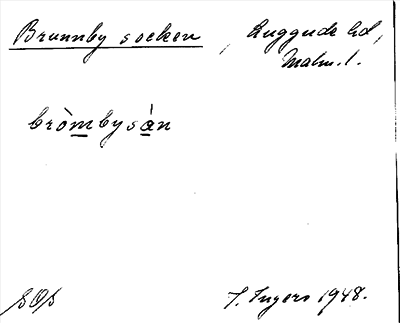 Brunnby socken, Luggude hd,
Malm. l.
bròmbysàn
SOS I. Ingers 1948.